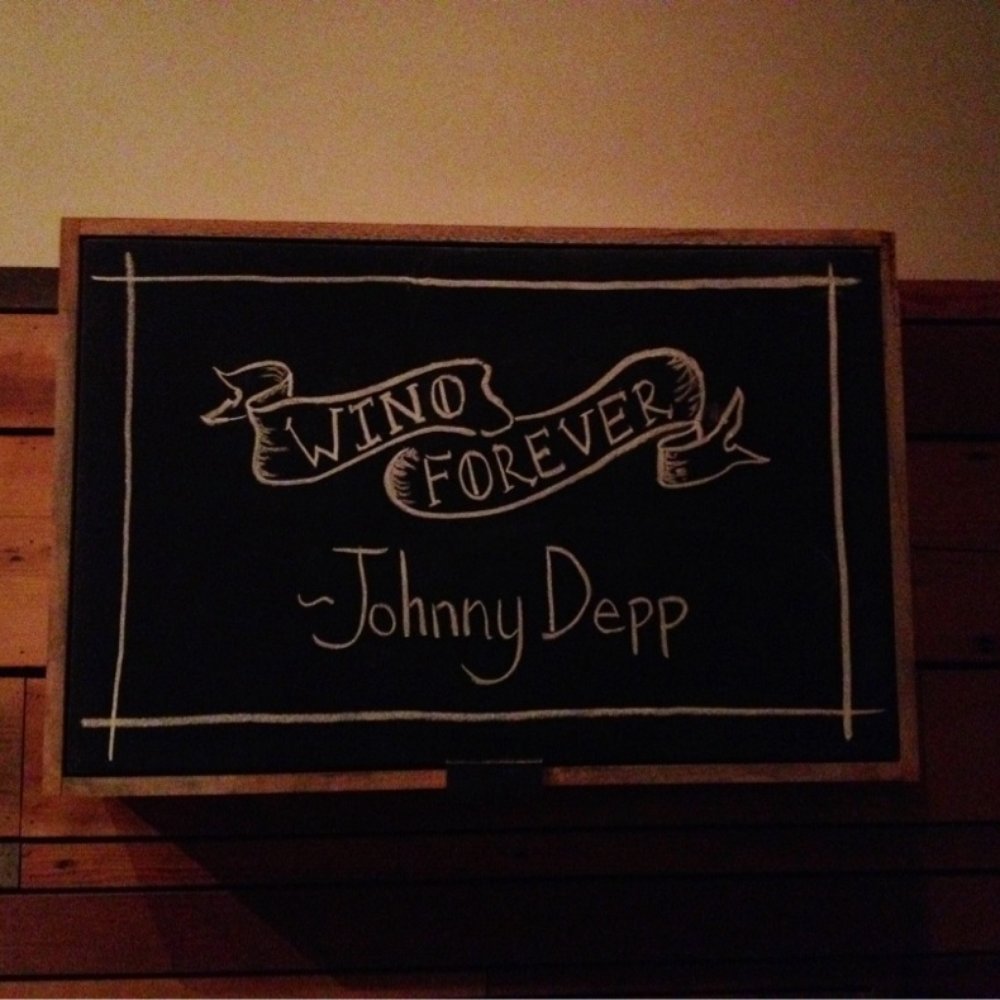 WINO
FOREVER
~Johnny Depp